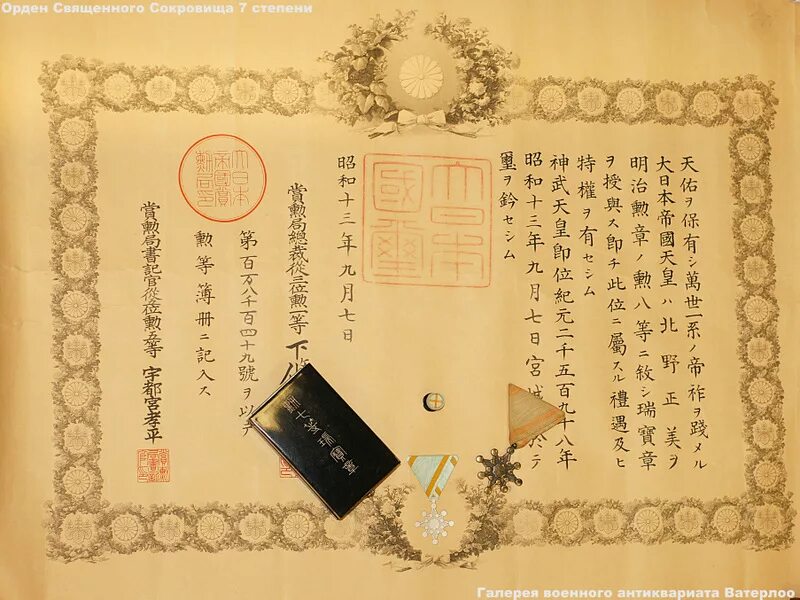 Орден Священного Сокровища 7 степени
天佑ヲ保有シ萬世一系ノ帝祚ヲ踐メル
大日本帝國天皇ハ北野正美ヲ
明治勲章ノ勲八等ニ敍シ瑞寶章
ヲ授與ス即チ此位ニ屬スル禮遇及ヒ
特權ヲ有セシム
神武天皇即位紀元二千五百九十八年
昭和十三年九月七日宮城 於テ
璽ヲ鈐セシム
大日本
國璽
昭和十三年九月七日
賞勲局總裁從三位勲一等 下
第百万八千百四十九號ヲ以テ
勲等簿冊ニ記入ス
賞勲局書記官從 位勲五等 宇都宮孝平
勲七等瑞寶章
Галерея военного антиквариата Ватерлоо